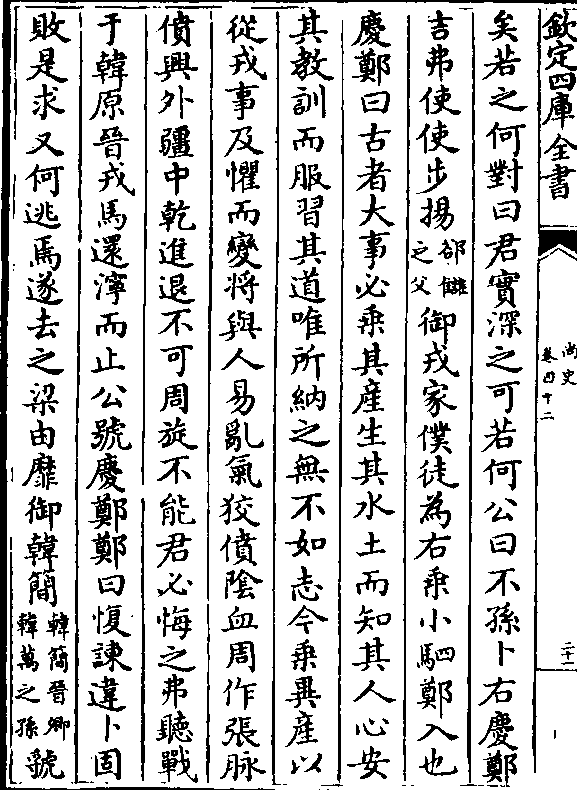 欽定四庫全書
尚史
卷四十二
二十一
矣若之何對曰君實深之可若何公曰不孫卜右慶鄭
吉弗使使步揚郤犨之父御戎家僕徒為右乘小駟鄭入也
慶鄭曰古者大事必乘其產生其水土而知其人心安
其教訓而服習其道唯所納之無不如志今乘異產以
從戎事及懼而變將與人易亂氣狡僨陰血周作張脉
僨興外彊中乾進退不可周旋不能君必悔之弗聽戰
于韓原晉戎馬還濘而止公號慶鄭鄭曰愎諫違卜固
敗是求又何逃焉遂去之梁由靡御韓簡韓簡晉卿韓萬之孫虢